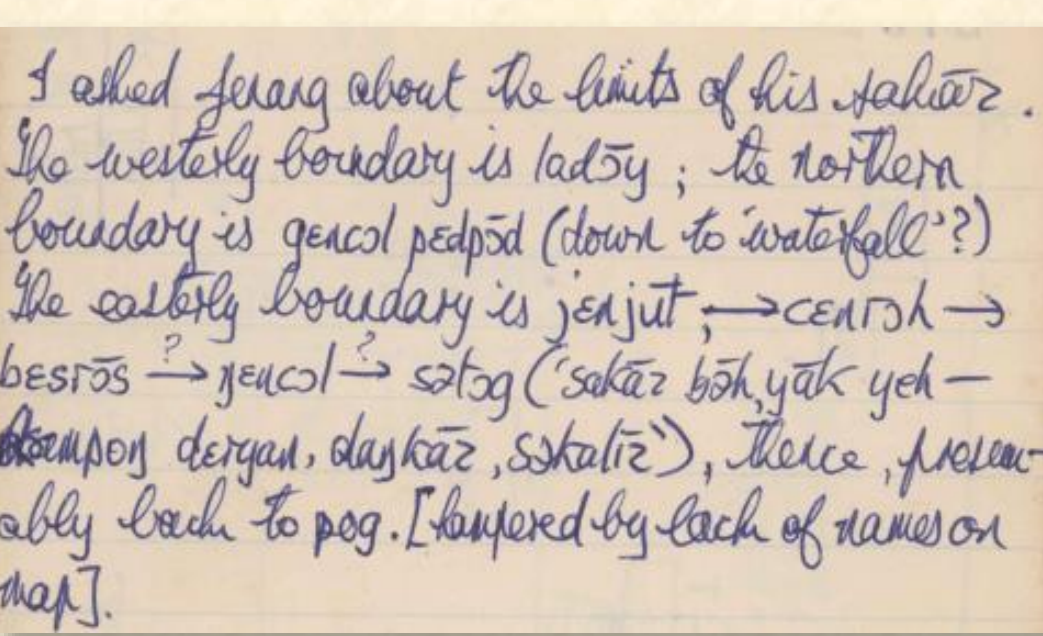 I asked Jerang about the limits of his sakāz.
The westerly boundary is ladɔ̄y; the northern
boundary is gɛncɔl pɛdpɔ̄d (down to 'waterfall'?)
The easterly boundary is jɛnjut; → cɛnrɔh →
bɛsrɔ̄s →? ɲɛncɔl →? sətɔg ('sakāz bɔ̄h, yāk yeh —
kampoŋ dɛrgan, daŋkāz, səkalīz'), thence, presum-
ably back to pɔg. [hampered by lack of names on
map].